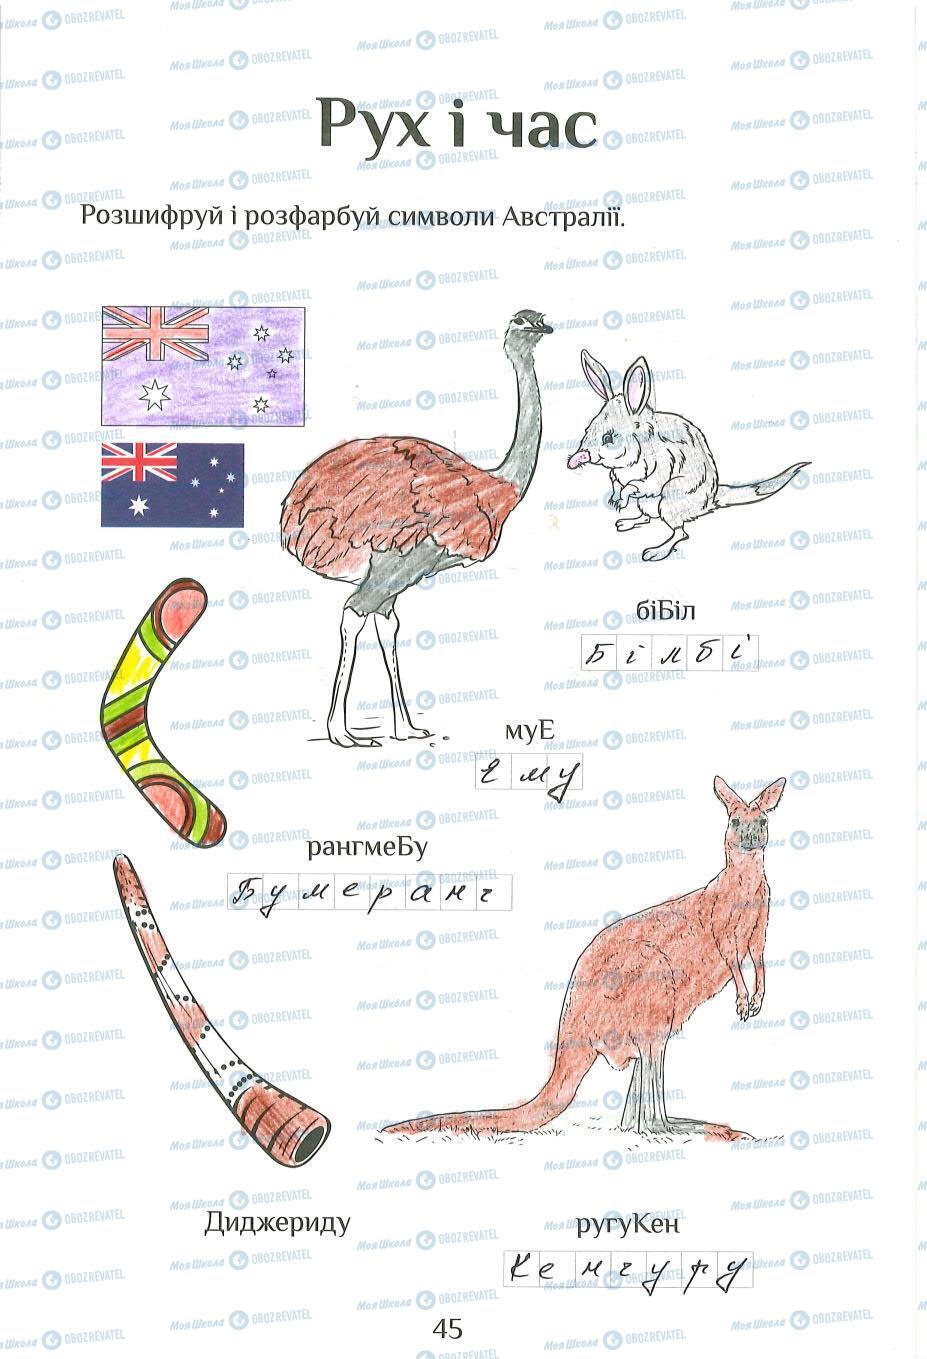 Рух і час
Розшифруй і розфарбуй символи Австралії.
біБіл
Білбі
муЕ
Ему
рангмеБу
Бумеранг
Диджериду
ругуКен
Кенгуру
45
МояШкола OBOZREVATEL